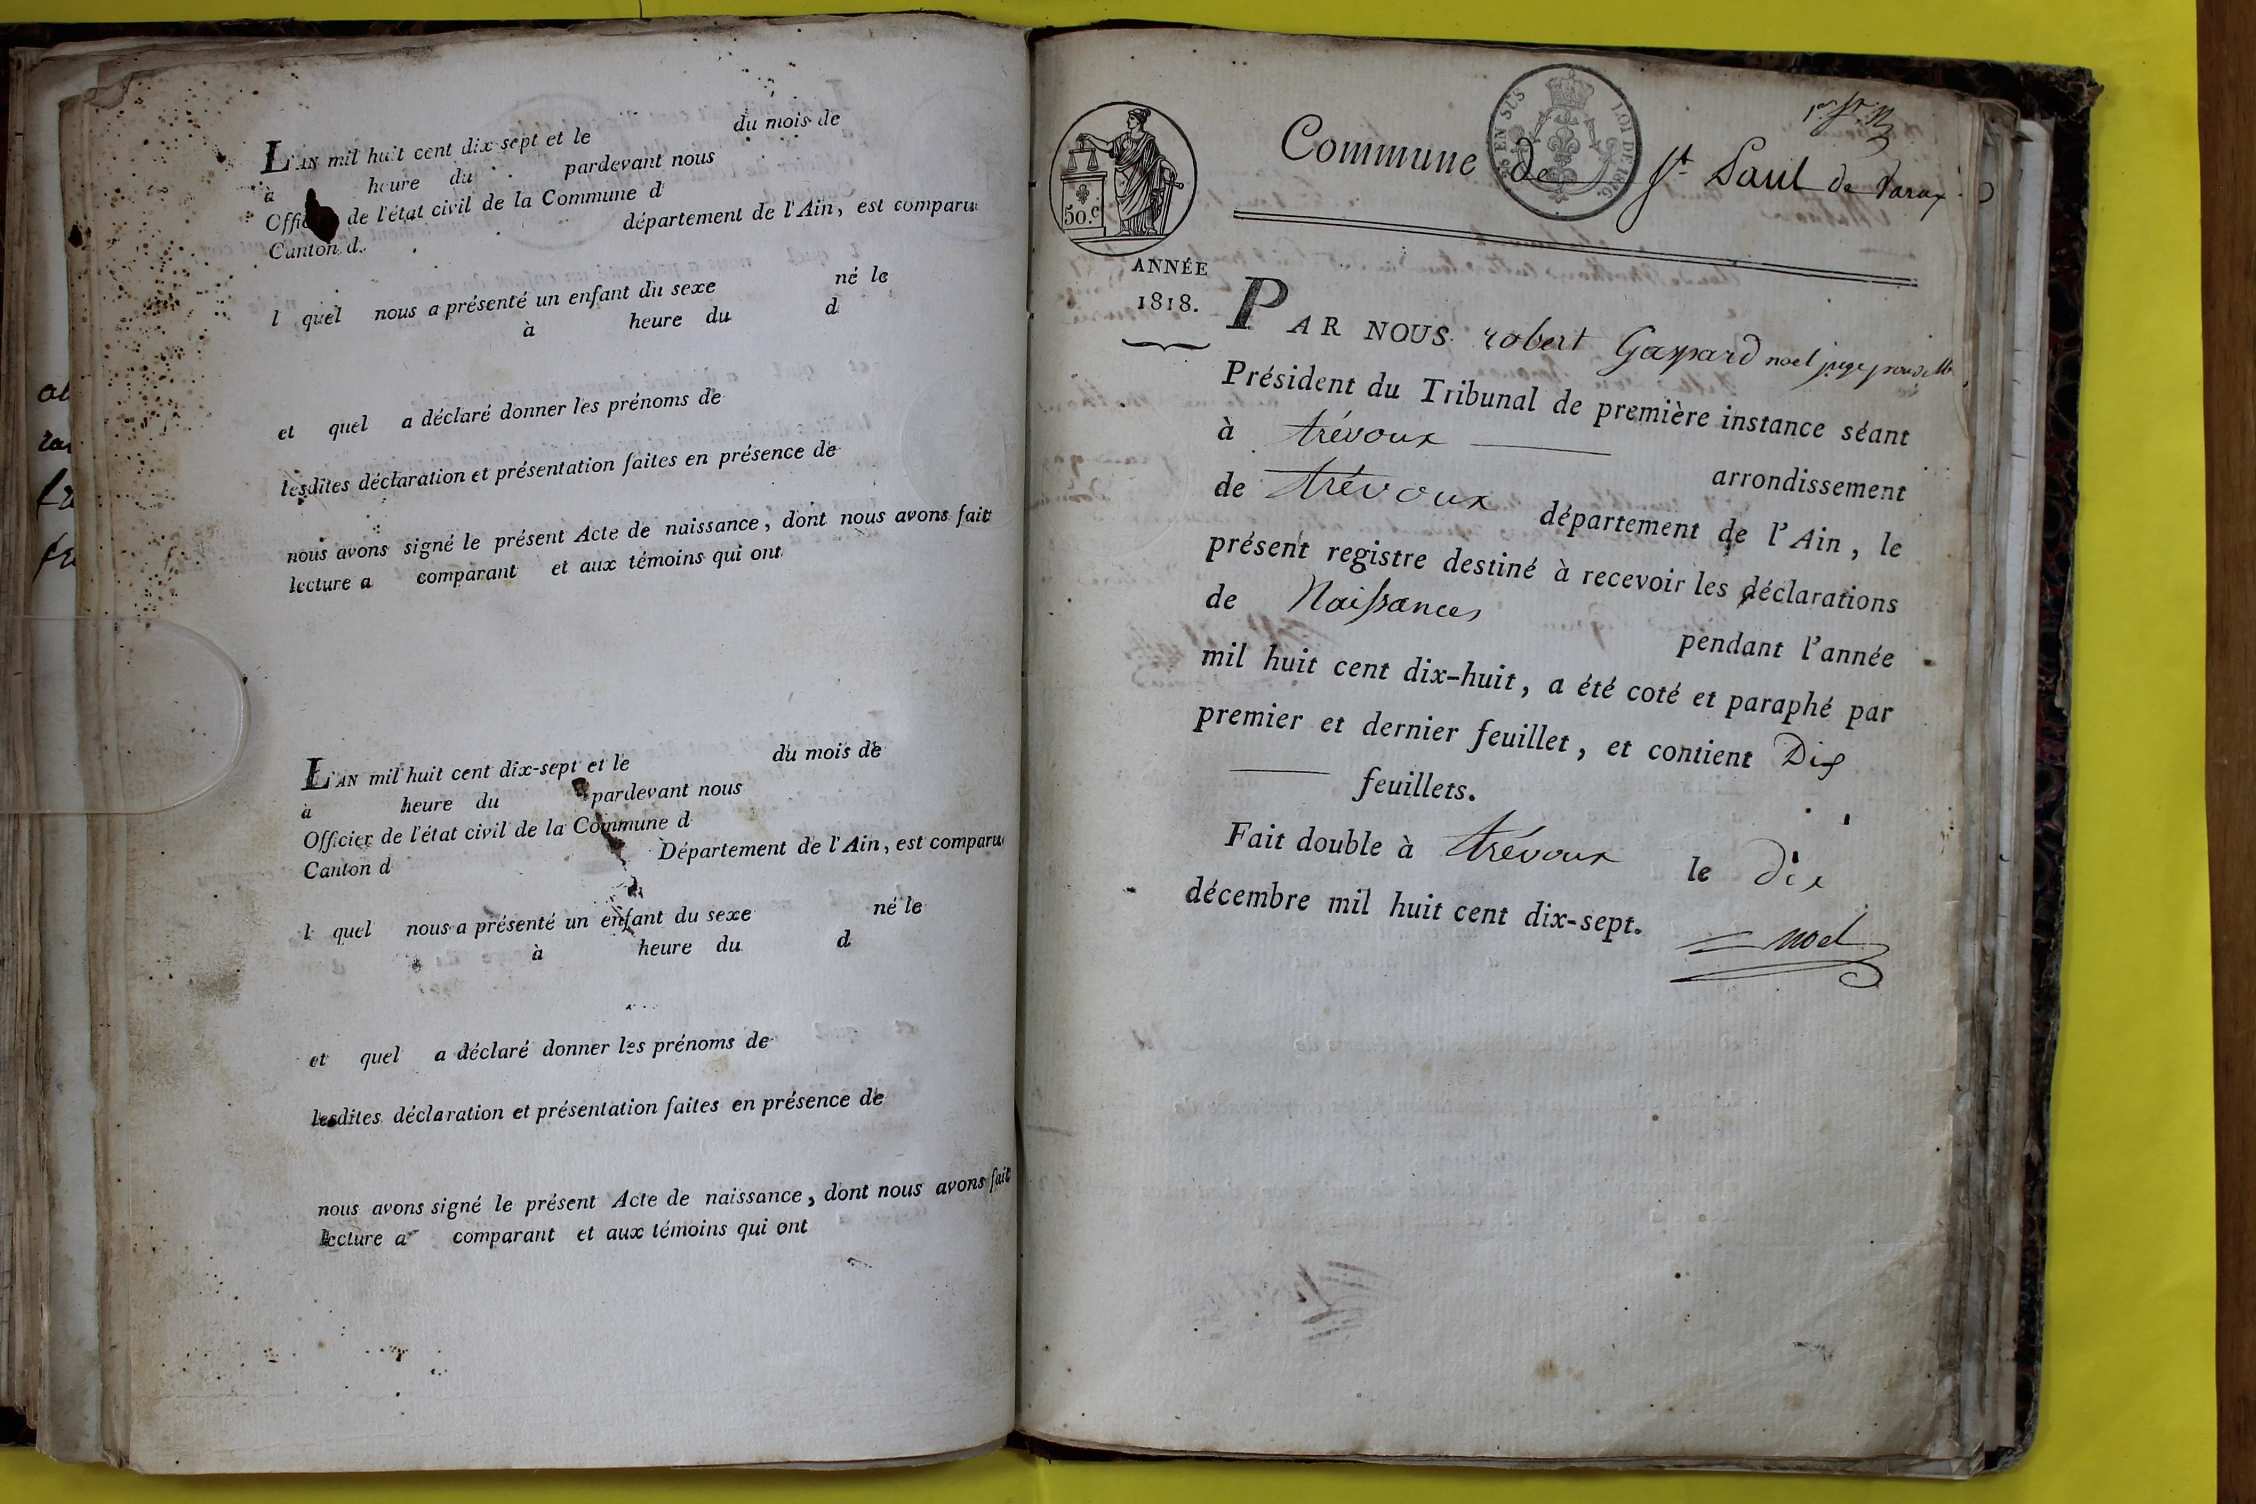 L'AN mil huit cent dix-sept et le du mois de
à heure du pardevant nous
Officier de l'état civil de la Commune d
Canton d département de l'Ain, est comparu
l quel nous a présenté un enfant du sexe né le
à heure du d
et quel a déclaré donner les prénoms de
lesdites déclaration et présentation faites en présence de
nous avons signé le présent Acte de naissance, dont nous avons fait
lecture a comparant et aux témoins qui ont
L'AN mil huit cent dix-sept et le du mois de
à heure du pardevant nous
Officier de l'état civil de la Commune d
Canton d Département de l'Ain, est comparu
l quel nous a présenté un enfant du sexe né le
à heure du d
et quel a déclaré donner les prénoms de
lesdites déclaration et présentation faites en présence de
nous avons signé le présent Acte de naissance, dont nous avons fait
lecture a comparant et aux témoins qui ont
50.c
EN SUS LOI DE 1816.
Commune de St Paul de Varax
ANNÉE
1818.
PAR NOUS robert Gaspard noel juge
Président du Tribunal de première instance séant
à trévoux arrondissement
de trévoux département de l'Ain, le
présent registre destiné à recevoir les déclarations
de Naissances pendant l'année
mil huit cent dix-huit, a été coté et paraphé par
premier et dernier feuillet, et contient Dix
feuillets.
Fait double à trévoux le dix
décembre mil huit cent dix-sept.
noel